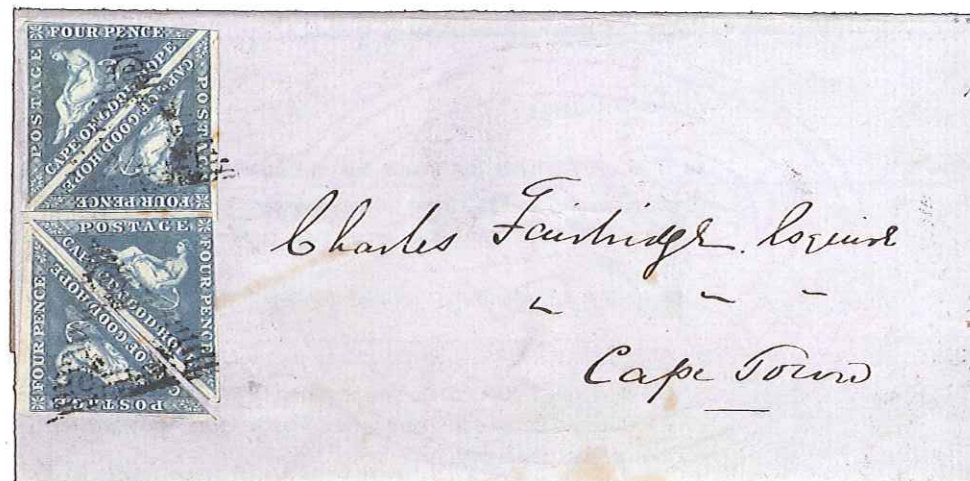 FOUR PENCE
POSTAGE
CAPE OF GOOD HOPE
CAPE OF GOOD HOPE
POSTAGE
FOUR PENCE
POSTAGE
FOUR PENCE
CAPE OF GOOD HOPE
CAPE OF GOOD HOPE
FOUR PENCE
POSTAGE
Charles Fairbridge Esquire
" " "
Cape Town